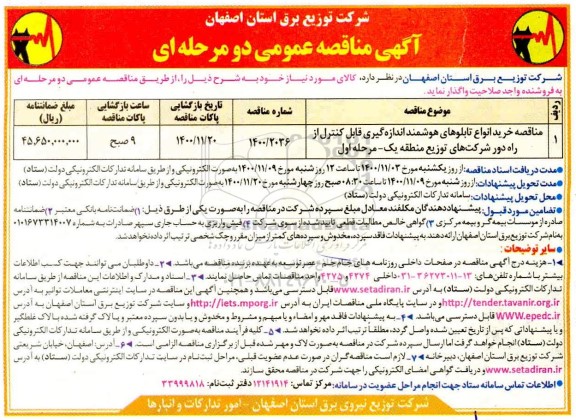 شرکت توزیع برق استان اصفهان
آگهی مناقصه عمومی دو مرحله ای
شرکت توزیع برق استان اصفهان در نظر دارد، کالای مورد نیاز خود به شرح ذیل را، از طریق مناقصه عمومی دو مرحله ای
به فروشنده واجد صلاحیت واگذار نماید.
ردیف موضوع مناقصه شماره مناقصه تاریخ بازگشایی پاکات مناقصه ساعت بازگشایی پاکات مناقصه مبلغ ضمانتنامه (ریال)
۱ مناقصه خرید انواع تابلوهای هوشمند اندازه گیری قابل کنترل از راه دور شرکت‌های توزیع منطقه یک - مرحله اول ۱۴۰۰/۲۰۳۶ ۱۴۰۰/۱۱/۲۰ ۹ صبح ۴۵,۶۵۰,۰۰۰,۰۰۰
مدت دریافت اسناد مناقصه: از روز یکشنبه مورخ ۱۴۰۰/۱۱/۰۳ تا ساعت ۱۲ روز شنبه مورخ ۱۴۰۰/۱۱/۰۹ به صورت الکترونیکی و از طریق سامانه تدارکات الکترونیکی دولت (ستاد)
مدت تحویل پیشنهادات: از روز شنبه مورخ ۱۴۰۰/۱۱/۰۹ تا ساعت ۰۸:۳۰ صبح روز چهارشنبه مورخ ۱۴۰۰/۱۱/۲۰ به صورت الکترونیکی و از طریق سامانه تدارکات الکترونیکی دولت (ستاد)
محل تحویل پیشنهادات: سامانه تدارکات الکترونیکی دولت (ستاد)
تضامین مورد قبول: پیشنهاددهندگان مکلفند معادل مبلغ سپرده شرکت در مناقصه را به صورت یکی از طرق ذیل: ۱) ضمانتنامه بانکی معتبر ۲) ضمانتنامه
صادره از موسسات بیمه گر و بیمه مرکزی ۳) گواهی خالص مطالبات تایید شده از سوی شرکت ۴) فیش واریزی به حساب جاری سپهر صادرات به شماره ۰۱۰۱۶۷۳۳۱۴۰۰۷
به نام شرکت توزیع برق استان اصفهان ارائه دهند. به پیشنهادات فاقد سپرده، مخدوش و سپرده‌های کمتر از میزان مقرر و چک شخصی ترتیب اثر داده نخواهد شد.
سایر توضیحات:
۱- هزینه درج آگهی مناقصه در صفحات داخلی روزنامه های جام جم و عصر توسعه به عهده برنده مناقصه می‌باشد. ۲- داوطلبان می توانند جهت کسب اطلاعات
بیشتر با شماره تلفن‌های: ۱۳-۳۶۲۷۳۰۱۱-۰۳۱ داخلی ۴۲۷۴ و ۴۲۷۵ واحد مناقصات تماس حاصل نمایند. ۳- اسناد و مدارک و اطلاعات این مناقصه از طریق سامانه
تدارکات الکترونیکی دولت (ستاد) به آدرس www.setadiran.ir قابل دسترسی می باشد و همچنین آگهی این مناقصه در سایت اینترنتی معاملات توانیر به آدرس
http://tender.tavanir.org.ir و پایگاه ملی مناقصات ایران به آدرس http://iets.mporg.ir و سایت شرکت توزیع برق استان اصفهان به آدرس
WWW.epedc.ir قابل دسترسی می‌باشد. ۴- به پیشنهادات فاقد مهر و امضاء و یا مبهم و مشروط و مخدوش و یا بدون سپرده معتبر و یا پلاک گذاری شده با پلاک غلطگیر
و یا پیشنهاداتی که پس از تاریخ تعیین شده واصل گردد، مطلقاً ترتیب اثر داده نخواهد شد. ۵- کلیه فرآیند مناقصه به‌صورت الکترونیکی و از طریق سامانه تدارکات الکترونیکی
دولت (ستاد) انجام خواهد گرفت اما ارسال سپرده شرکت در مناقصه به صورت لاک و مهر شده قبل از برگزاری مناقصه الزامی است. ۶- آدرس: اصفهان، خیابان شریعتی
شرکت توزیع برق استان اصفهان، دبیرخانه ۷- لازم است مناقصه گران در صورت عدم عضویت قبلی، مراحل ثبت نام در سایت تدارکات الکترونیکی دولت (ستاد) به آدرس
www.setadiran.ir و دریافت گواهی امضای الکترونیکی را جهت شرکت در مناقصه محقق سازند.
اطلاعات تماس سامانه ستاد جهت انجام مراحل عضویت در سامانه: مرکز تماس: ۱۳۱۴۱۹۱۴ دفتر ثبت‌نام: ۳۳۹۹۹۸۱۸
شرکت توزیع نیروی برق استان اصفهان - امور تدارکات و انبارها